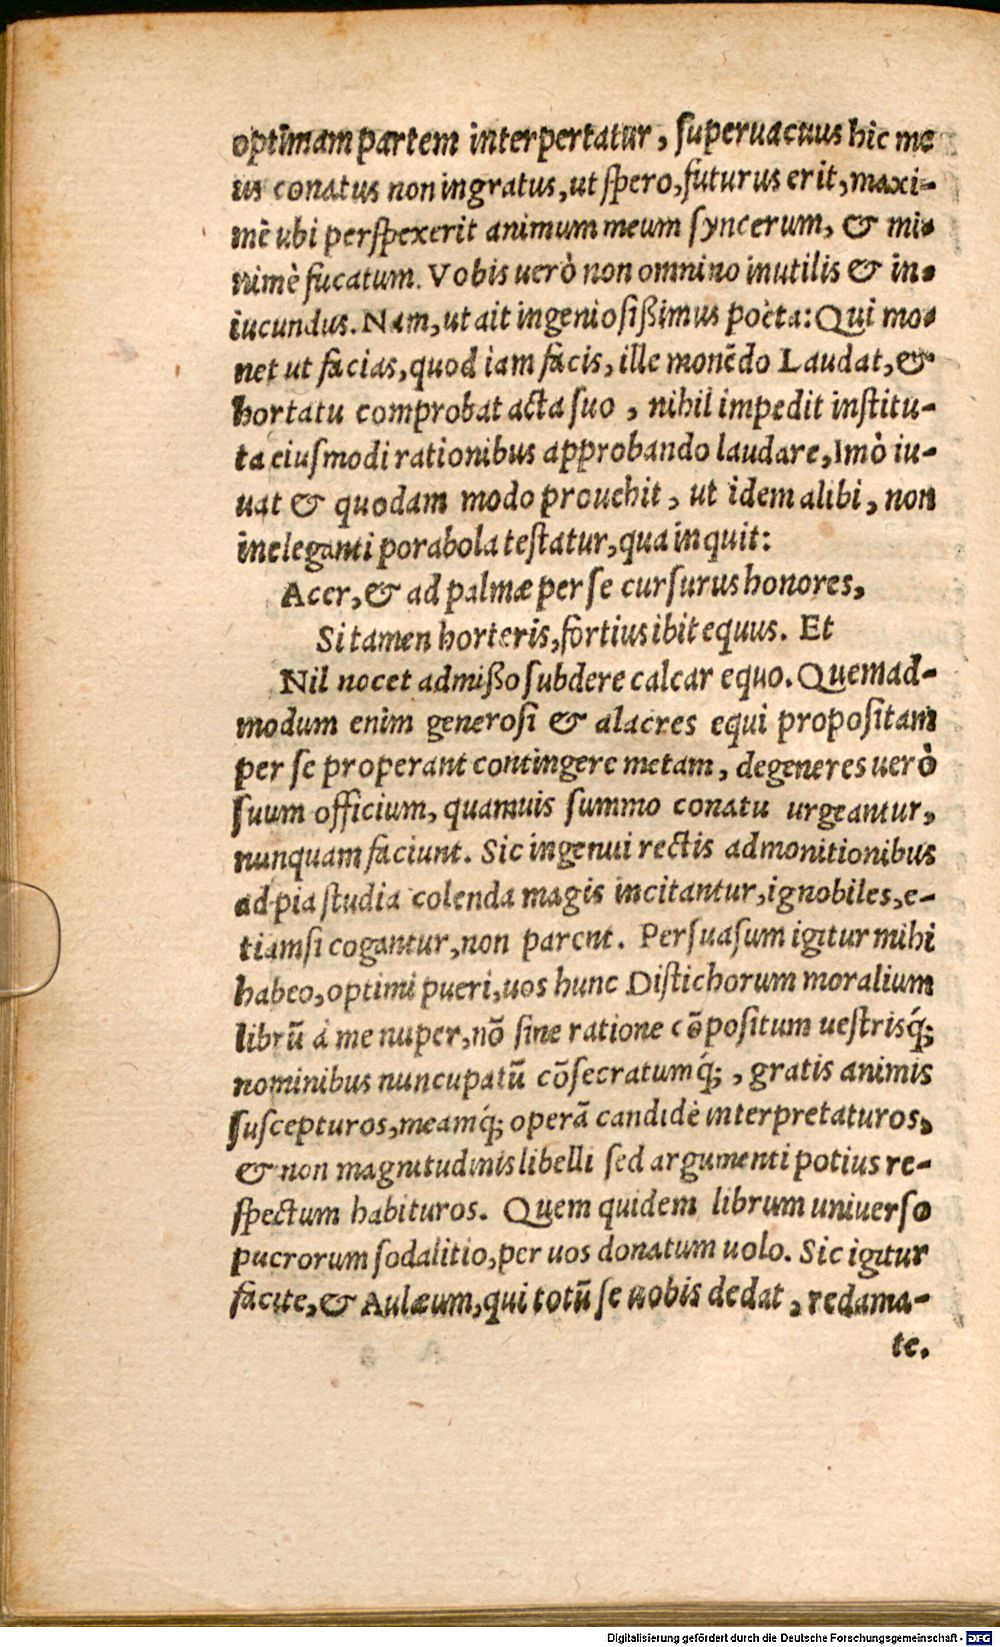 optimam partem interpertatur, superuacuus hic me
us conatus non ingratus, ut spero, futurus erit, maxi-
mè ubi perspexerit animum meum syncerum, & mi-
nimè fucatum. Vobis uerò non omnino inutilis & in-
iucundus. Nam, ut ait ingeniosißimus poëta: Qui mo-
net ut facias, quod iam facis, ille monẽdo Laudat, &
hortatu comprobat acta suo, nihil impedit institu-
ta eiusmodi rationibus approbando laudare, Imò iu-
uat & quodam modo prouehit, ut idem alibi, non
ineleganti porabola testatur, qua inquit:
Acer, & ad palmæ per se cursurus honores,
Si tamen horteris, fortius ibit equus. Et
Nil nocet admißo subdere calcar equo. Quemad-
modum enim generosi & alacres equi propositam
per se properant contingere metam, degeneres uerò
suum officium, quamuis summo conatu urgeantur,
nunquam faciunt. Sic ingenui rectis admonitionibus
ad pia studia colenda magis incitantur, ignobiles, e-
tiamsi cogantur, non parent. Persuasum igitur mihi
habeo, optimi pueri, uos hunc Distichorum moralium
librũ à me nuper, nõ sine ratione cõpositum uestrisq́;
nominibus nuncupatũ cõsecratumq́;, gratis animis
suscepturos, meamq́; operã candidè interpretaturos,
& non magnitudinis libelli sed argumenti potius re-
spectum habituros. Quem quidem librum uniuerso
puerorum sodalitio, per uos donatum uolo. Sic igitur
facite, & Aulæum, qui totũ se uobis dedat, redama-
te.
Digitalisierung gefördert durch die Deutsche Forschungsgemeinschaft - DFG